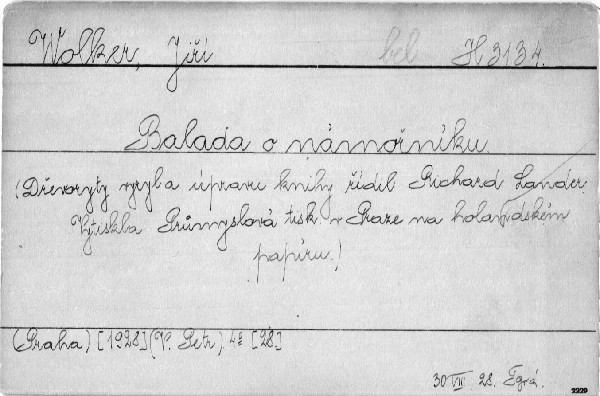 Wolker, Jiří bel H 3134.
Balada o námořníku.
(Dřevoryty vyryl a úpravu knihy řídil Richard Lander.
Vytiskla Průmyslová tisk. v Praze na holandském
papíru.)
(Praha) [1928] (V. Petr), 4° [28]
30 VII 28.
2229